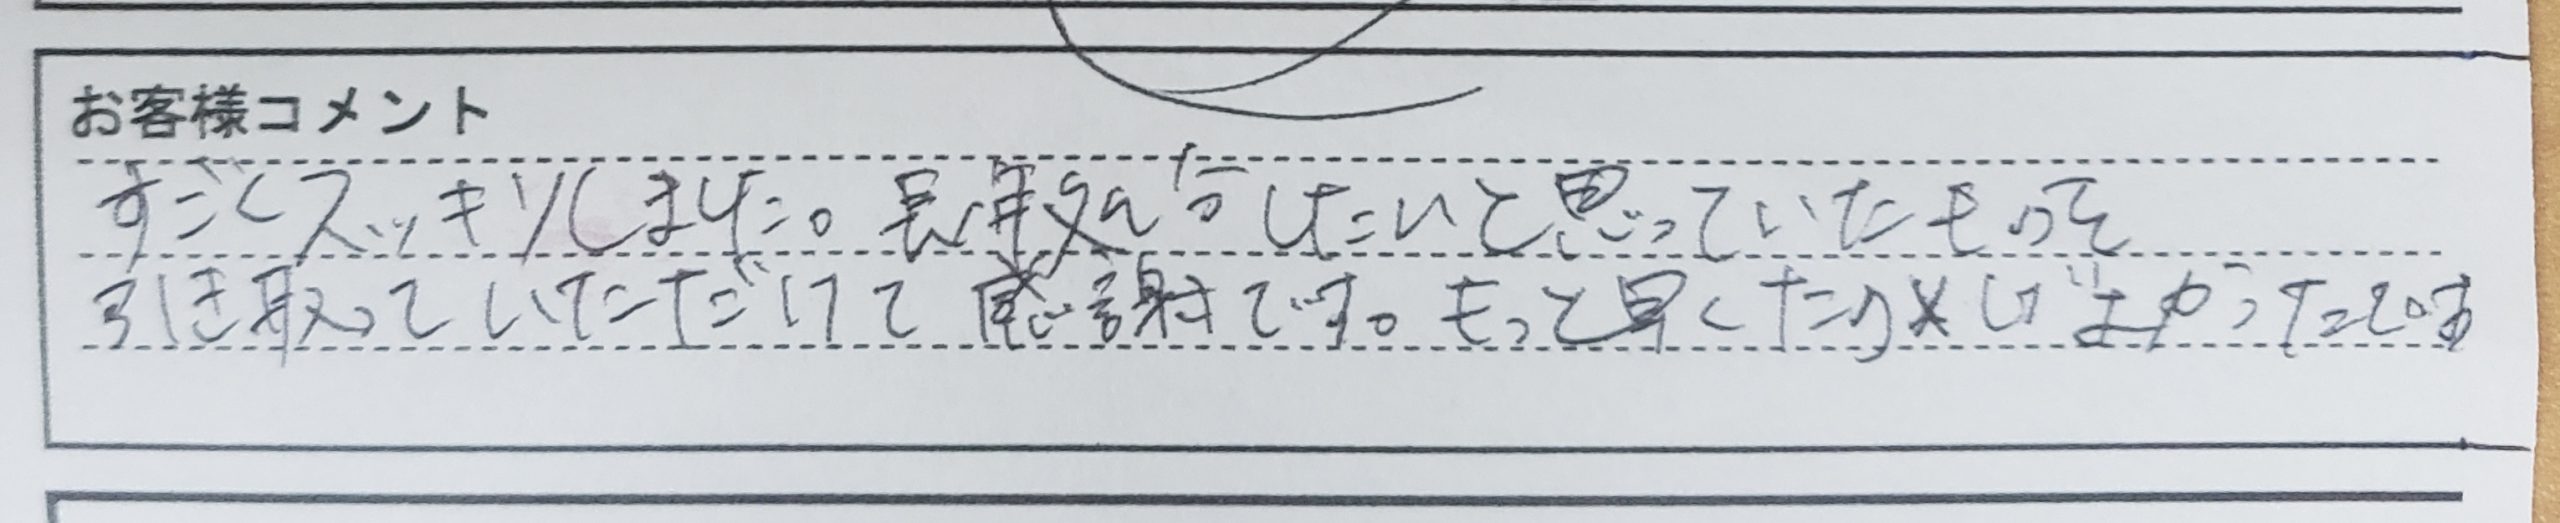 お客様コメント
すごくスッキリしました。長年処分したいと思っていたものを
引き取っていただけて感謝です。もっと早くたのめばよかったです